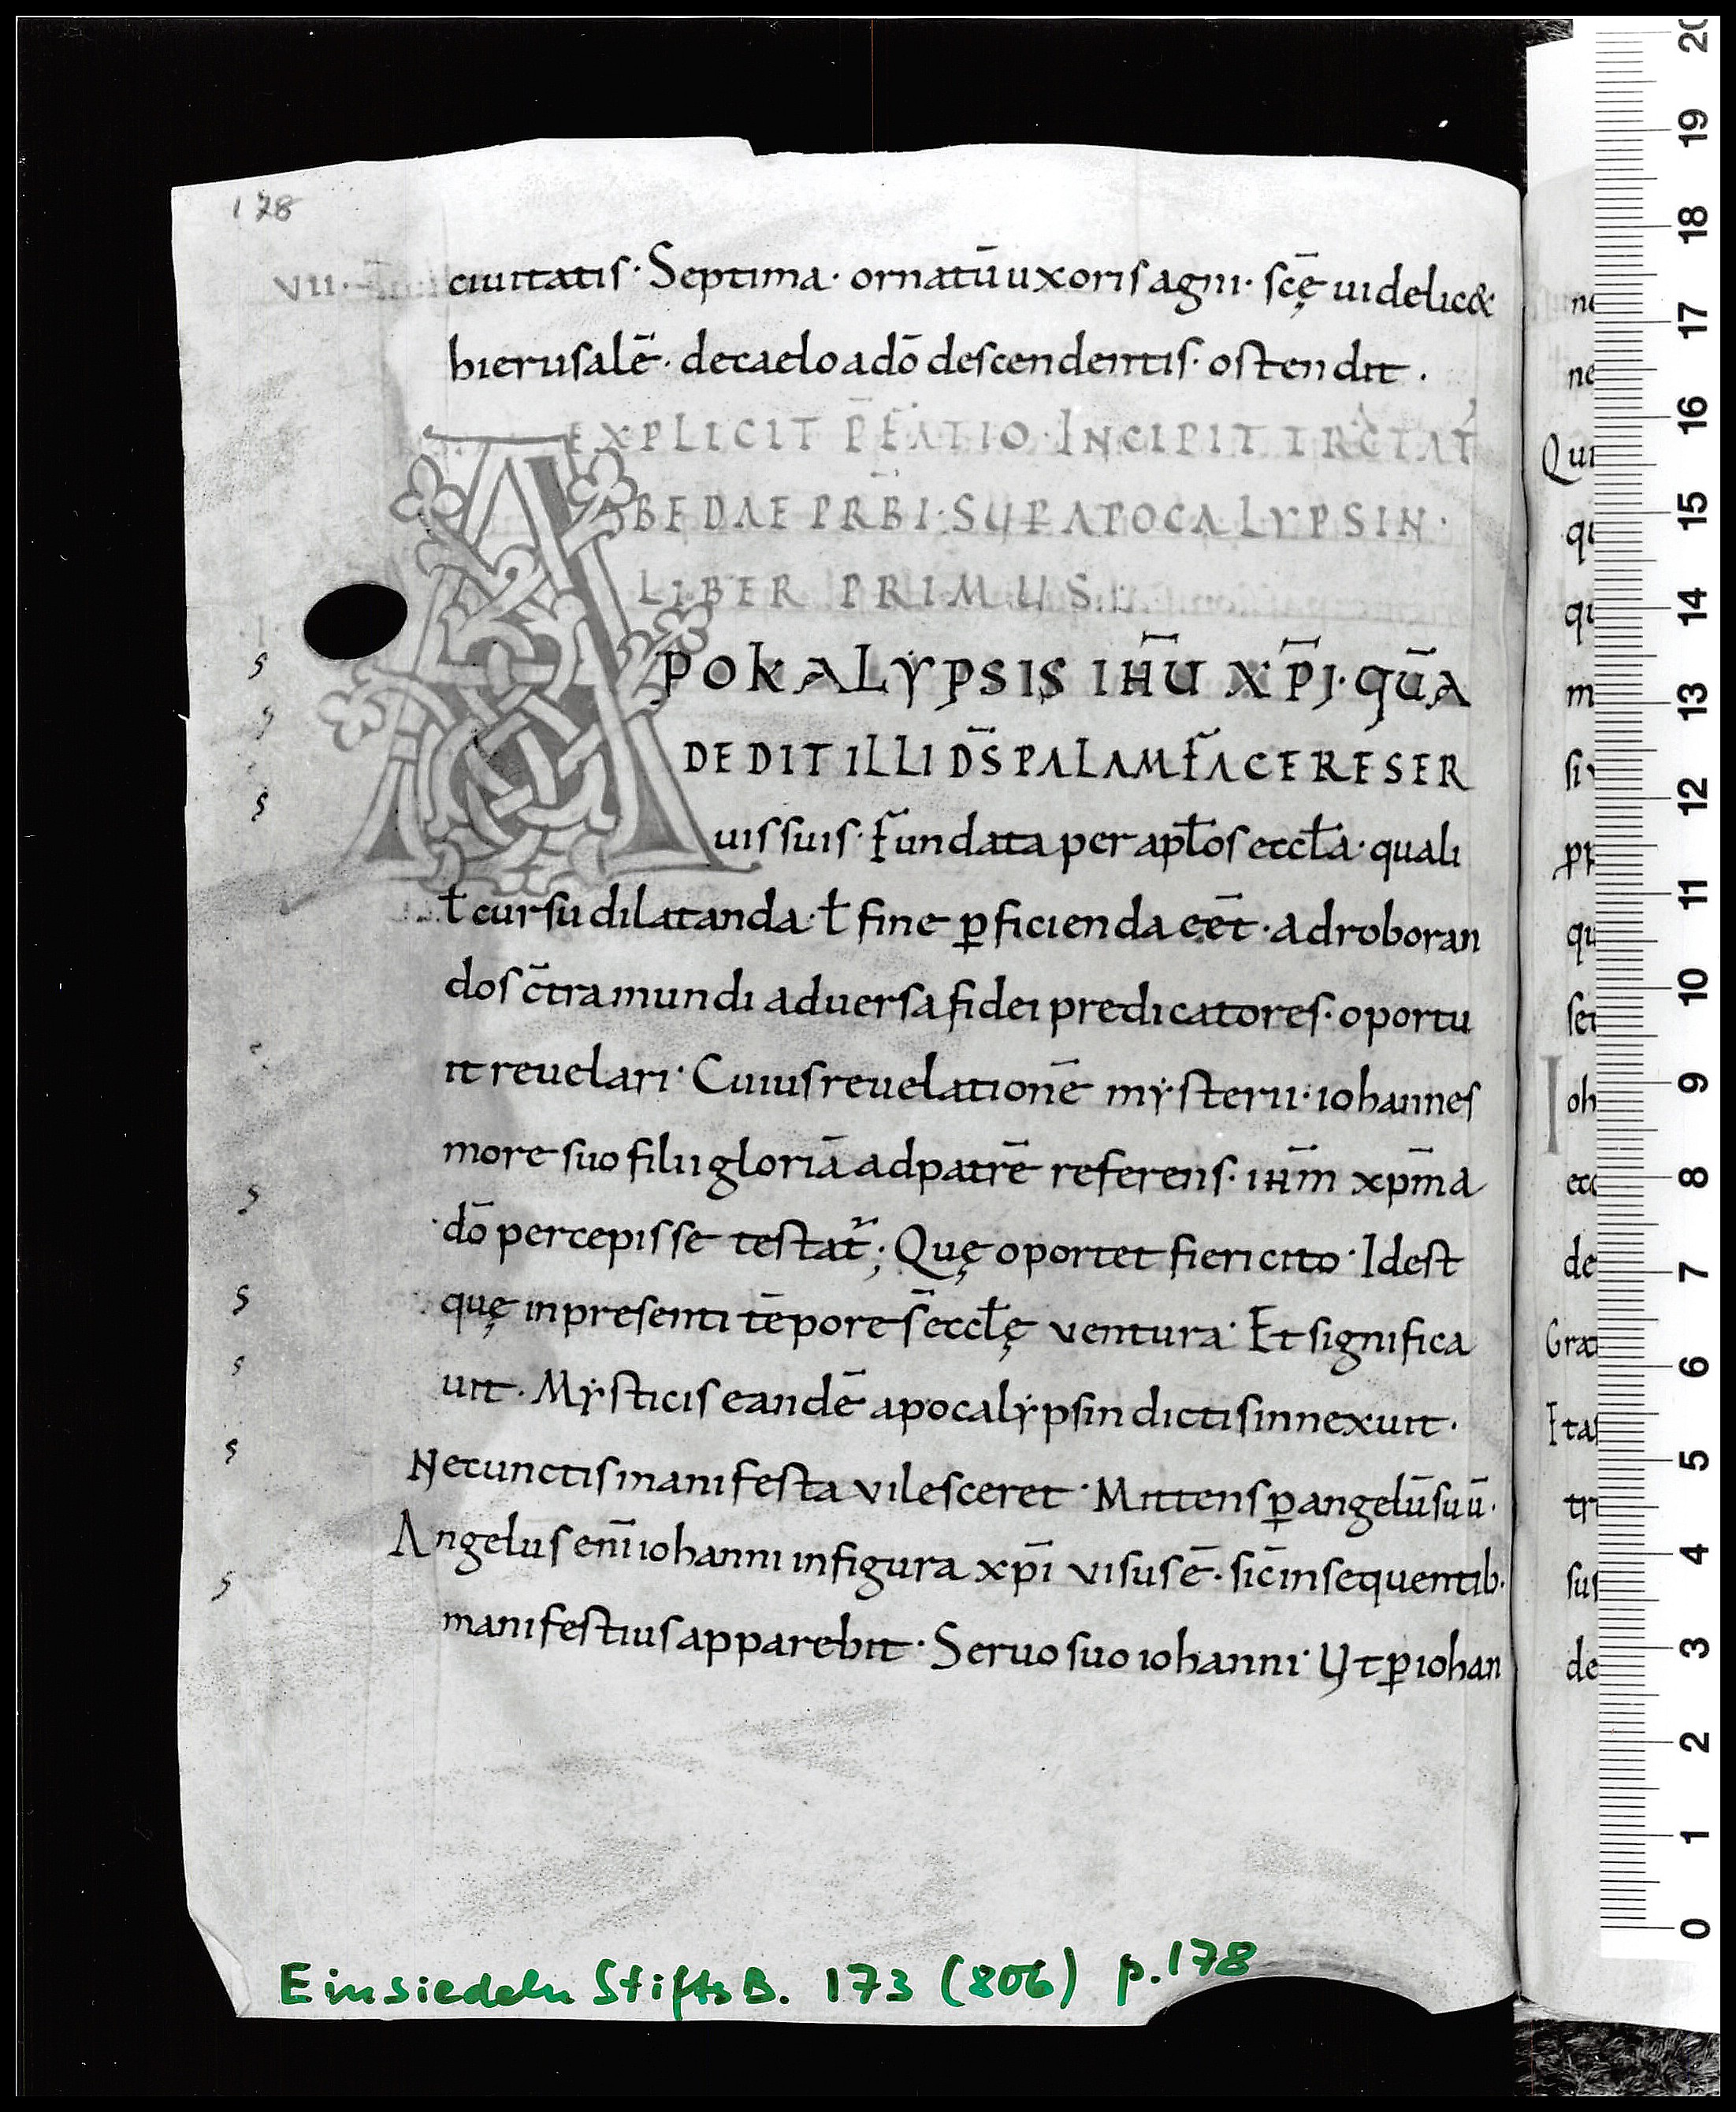 178
VII. ciuitatis· Septima· ornatū uxoris agni· scę̄ uidelic&
hierusalē· decaelo adō descendentis· ostendit.
EXPLICIT P̄FATIO· INCIPIT TRACTAT'
BEDAE PRB̄I· SUP APOCALYPSIN·
LIBER PRIMUS.
APOKALYPSIS IHŪ XP̄I· QUĀ
DEDIT ILLI DS̄ PALAM FACERE SER
uis suis· Fundata per apłos eccła· quali
ł cursu dilatanda· ł fine ꝑficienda eēt· adroboran
dos c̄tra mundi aduersa fidei predicatores· oportu
it reuelari· Cuius reuelationē mẏsterii· iohannes
more suo filii gloriā adpatrē referens· ihm̄ xpm̄ a
dō percepisse testat᷑; Quę oportet fieri cito· Idest
quę inpresenti tēpore s̄ ecclę ventura· Et significa
uit. Mẏsticis eandē apocalẏpsin dictis innexuit.
Ne cunctis manifesta vilesceret· Mittens ꝑ angelū suū.
Angelus eni̅ iohanni infigura xpi̅ visus ē· sic̄ insequentib.
manifestius apparebit· Seruo suo iohanni· Ut ꝑ iohan
s
s
s
s
s
s
s
s
Einsiedeln StiftsB. 173 (806) p.178
ne
ne
Qui
qu
qu
m
si
pr
qu
ser
Ioh
ecc
de
Gra
Ita
tri
sus
de
20
19
18
17
16
15
14
13
12
11
10
9
8
7
6
5
4
3
2
1
0